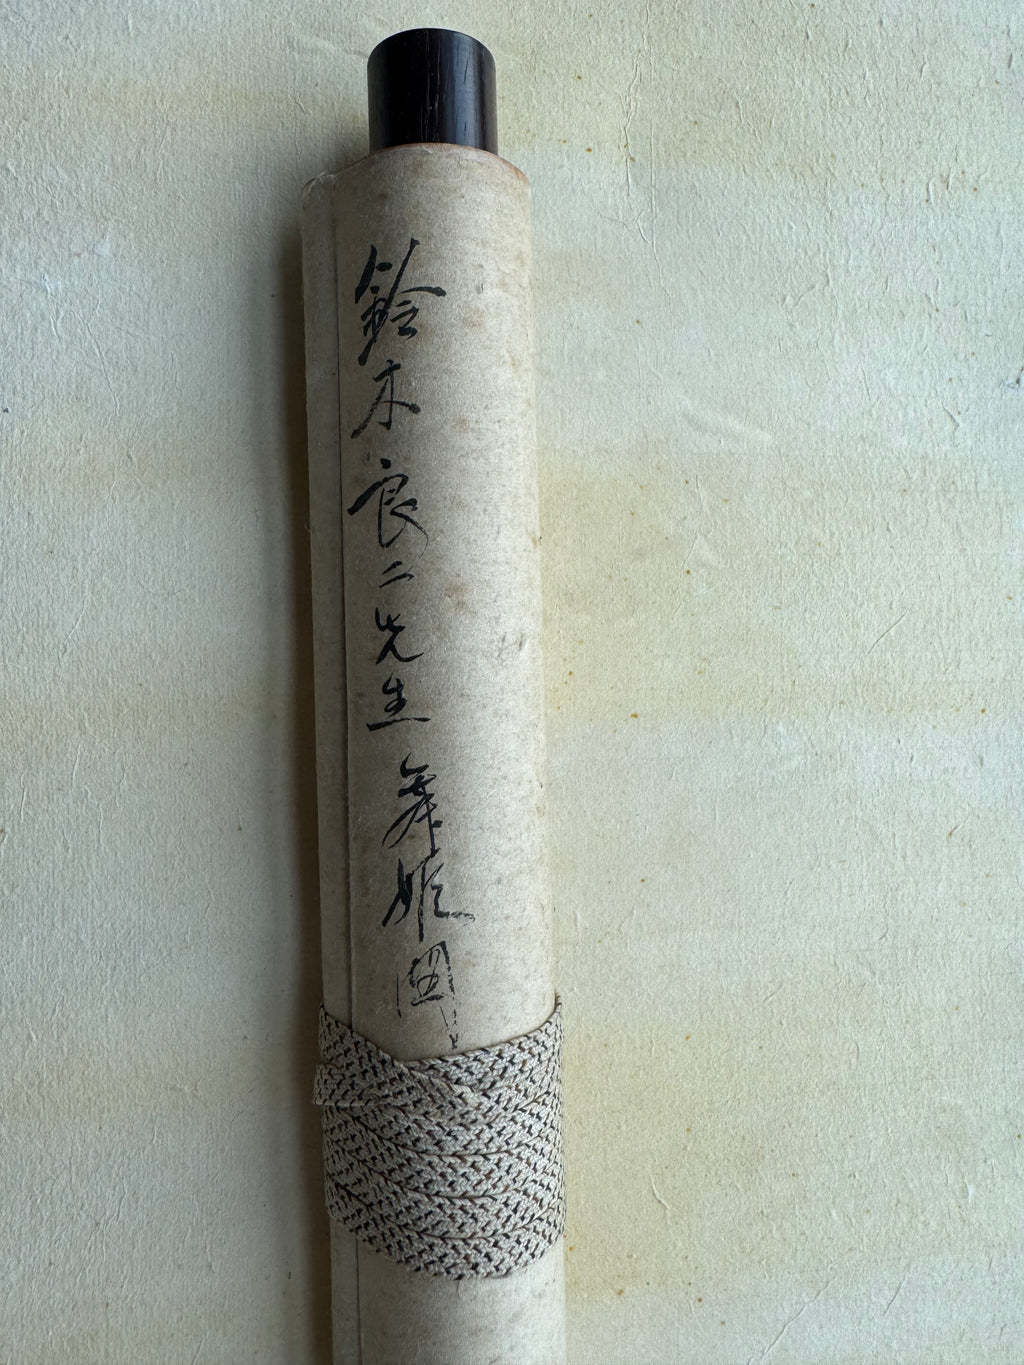 鈴木良二先生舞姫図